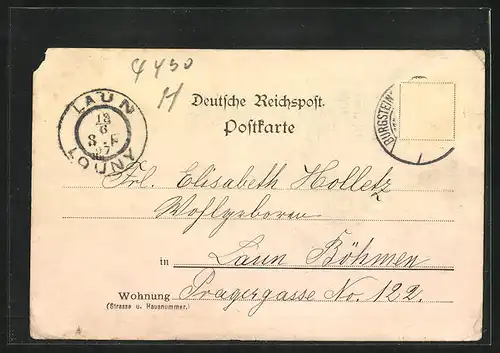 4450
H
Deutsche Reichspost.
Postkarte
LAUN
13
6
97
LOUNY
BURGSTEIN
Frl. Elisabeth Holletz
Wohlgeboren
in Laun Böhmen
Wohnung Pragergasse No. 122.
(Strasse u. Hausnummer.)